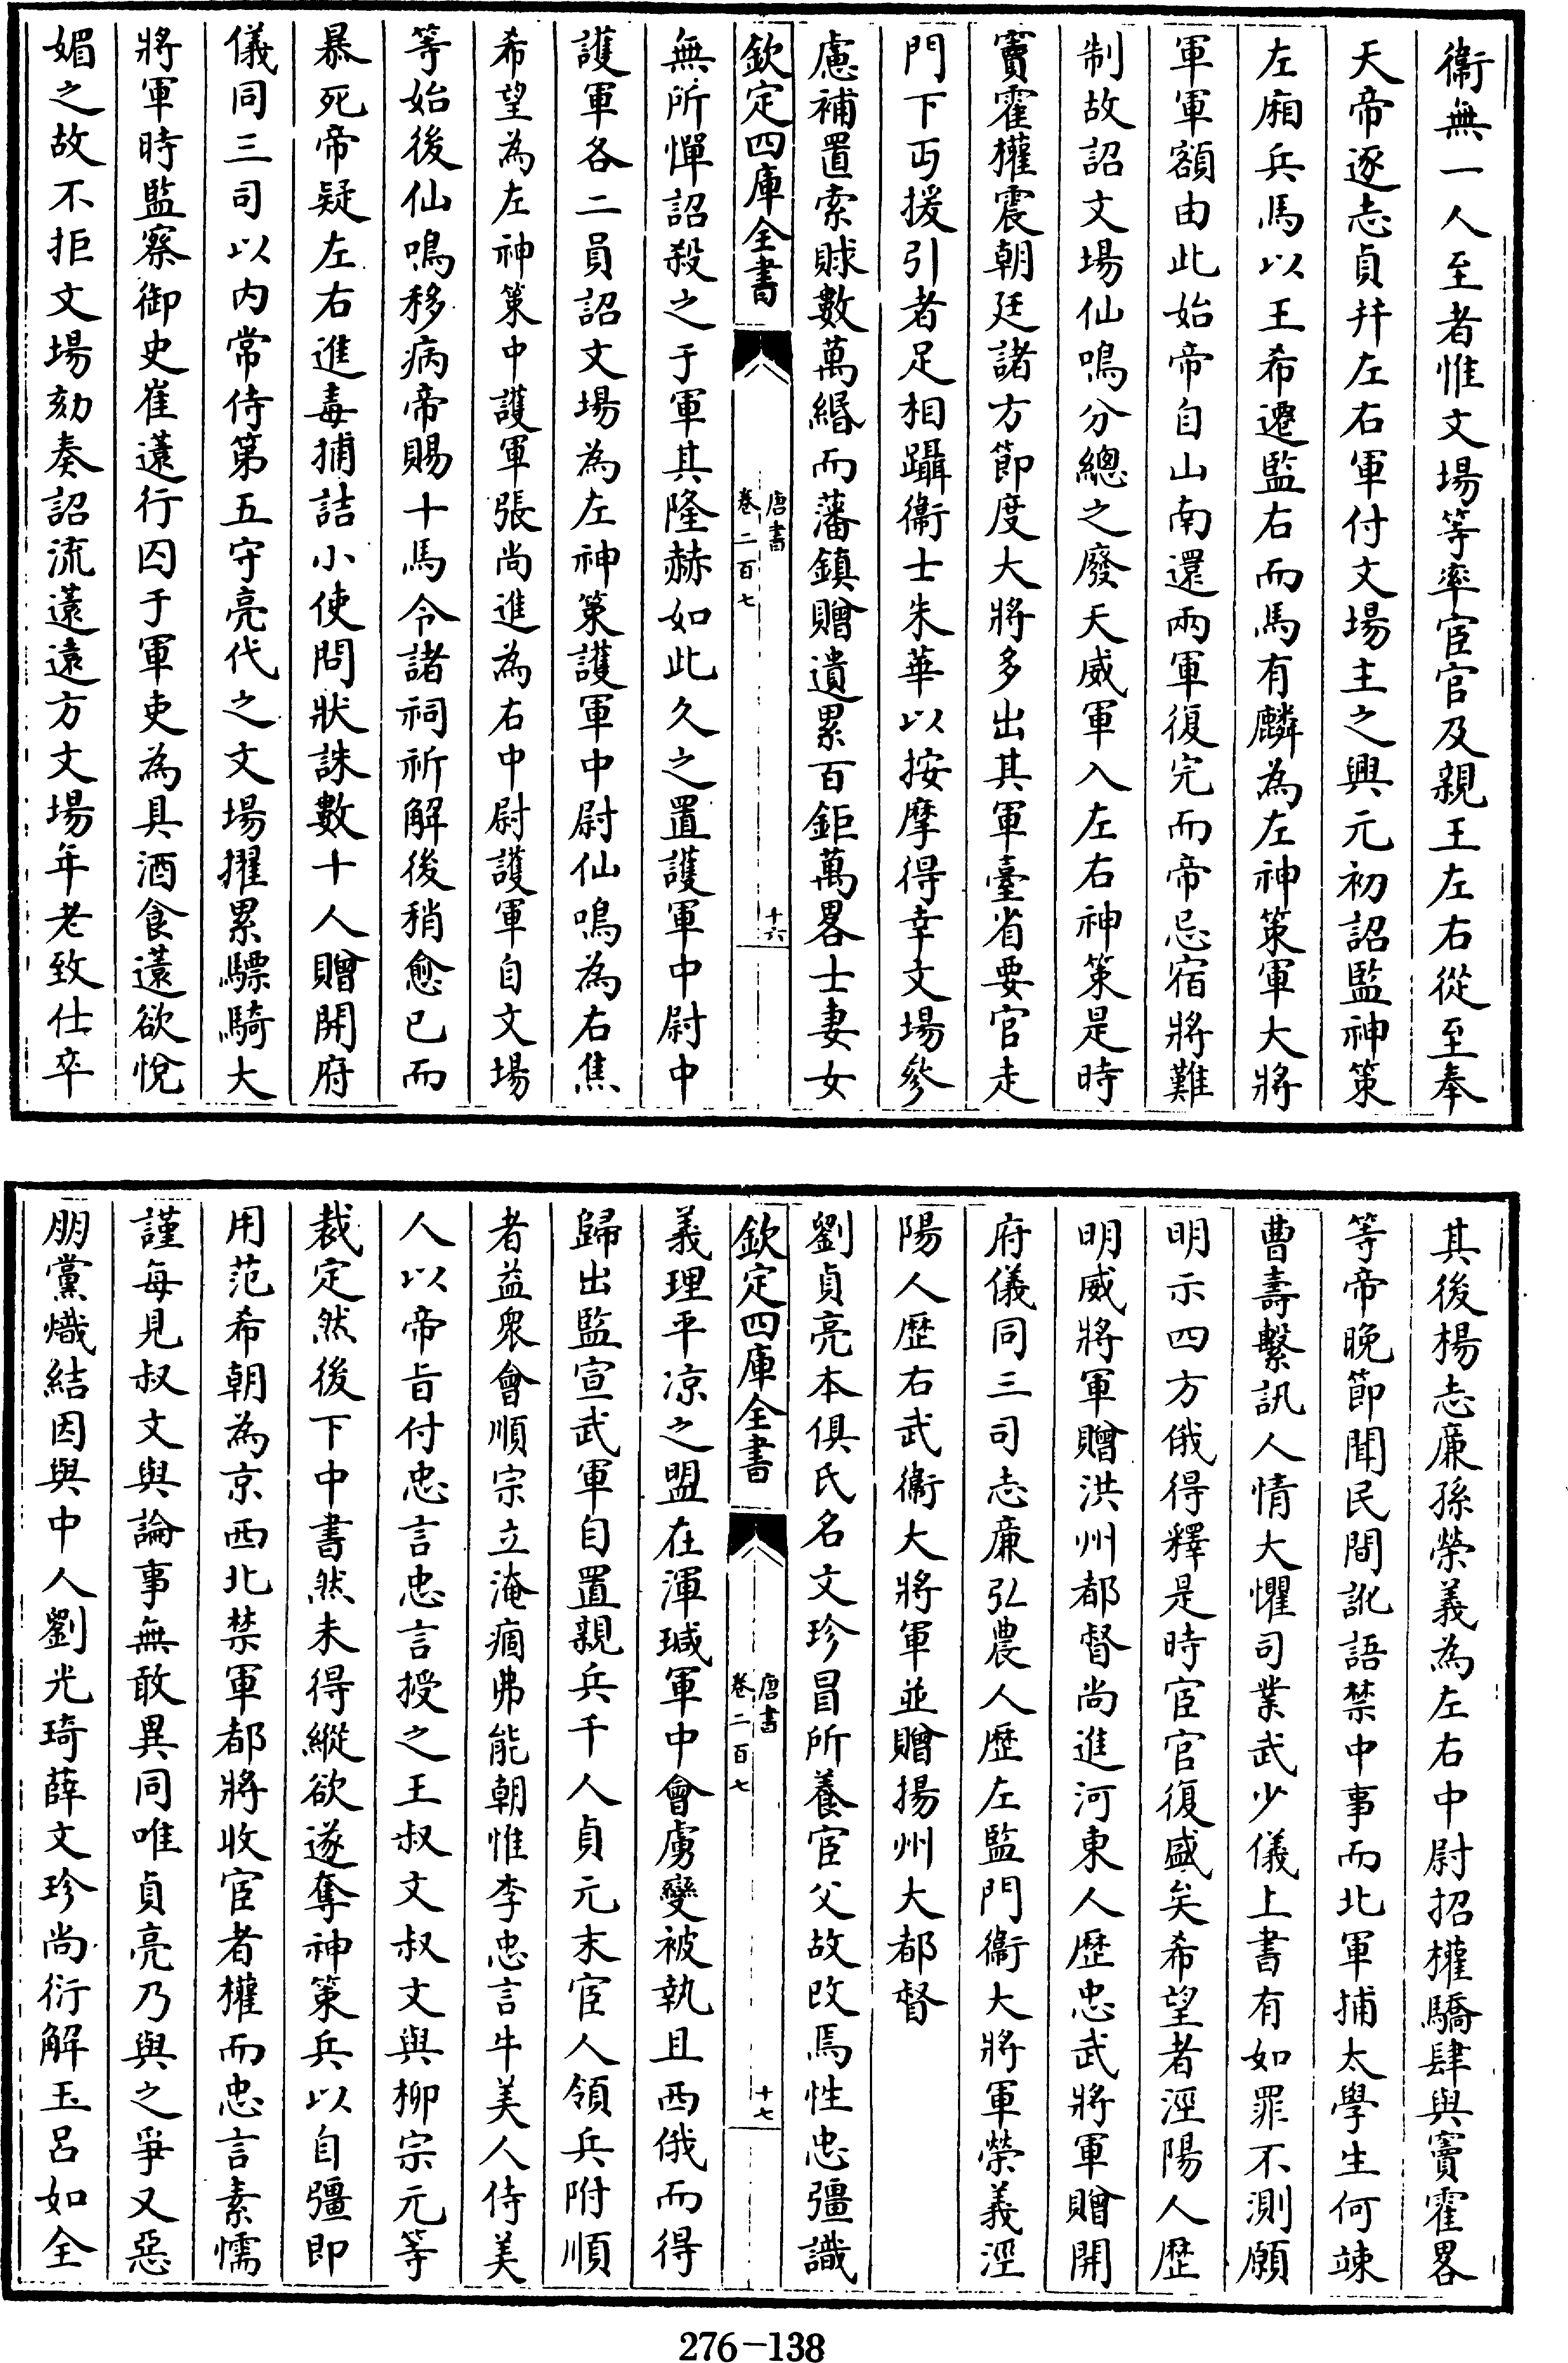 衞無一人至者惟文場等率宦官及親王左右從至奉
天帝逐志貞幷左右軍付文場主之興元初詔監神策
左廂兵馬以王希遷監右而馬有麟為左神策軍大將
軍軍額由此始帝自山南還兩軍復完而帝忌宿將難
制故詔文場仙鳴分總之廢天威軍入左右神策是時
竇霍權震朝廷諸方節度大將多出其軍臺省要官走
門下丐援引者足相躡衞士朱華以按摩得幸文場參
慮補置索賕數萬緡而藩鎮贈遺累百鉅萬畧士妻女
欽定四庫全書
唐書
卷二百七
十六
無所憚詔殺之于軍其隆赫如此久之置護軍中尉中
護軍各二員詔文場為左神策護軍中尉仙鳴為右焦
希望為左神策中護軍張尚進為右中尉護軍自文場
等始後仙鳴移病帝賜十馬令諸祠祈解後稍愈已而
暴死帝疑左右進毒捕詰小使問狀誅數十人贈開府
儀同三司以内常侍第五守亮代之文場擢累驃騎大
將軍時監察御史崔薳行囚于軍吏為具酒食薳欲悅
媚之故不拒文場劾奏詔流薳遠方文場年老致仕卒
其後楊志廉孫榮義為左右中尉招權驕肆與竇霍畧
等帝晚節聞民間訛語禁中事而北軍捕太學生何竦
曹壽繫訊人情大懼司業武少儀上書有如罪不測願
明示四方俄得釋是時宦官復盛矣希望者涇陽人歷
明威將軍贈洪州都督尚進河東人歷忠武將軍贈開
府儀同三司志廉弘農人歷左監門衞大將軍榮義涇
陽人歷右武衞大將軍並贈揚州大都督
劉貞亮本俱氏名文珍冒所養宦父故改焉性忠彊識
欽定四庫全書
唐書
卷二百七
十七
義理平凉之盟在渾瑊軍中會虜變被執且西俄而得
歸出監宣武軍自置親兵千人貞元末宦人領兵附順
者益衆會順宗立淹痼弗能朝惟李忠言牛美人侍美
人以帝旨付忠言忠言授之王叔文叔文與柳宗元等
裁定然後下中書然未得縱欲遂奪神策兵以自彊即
用范希朝為京西北禁軍都將收宦者權而忠言素懦
謹每見叔文與論事無敢異同唯貞亮乃與之爭又惡
朋黨熾結因與中人劉光琦薛文珍尚衍解玉呂如全
276-138